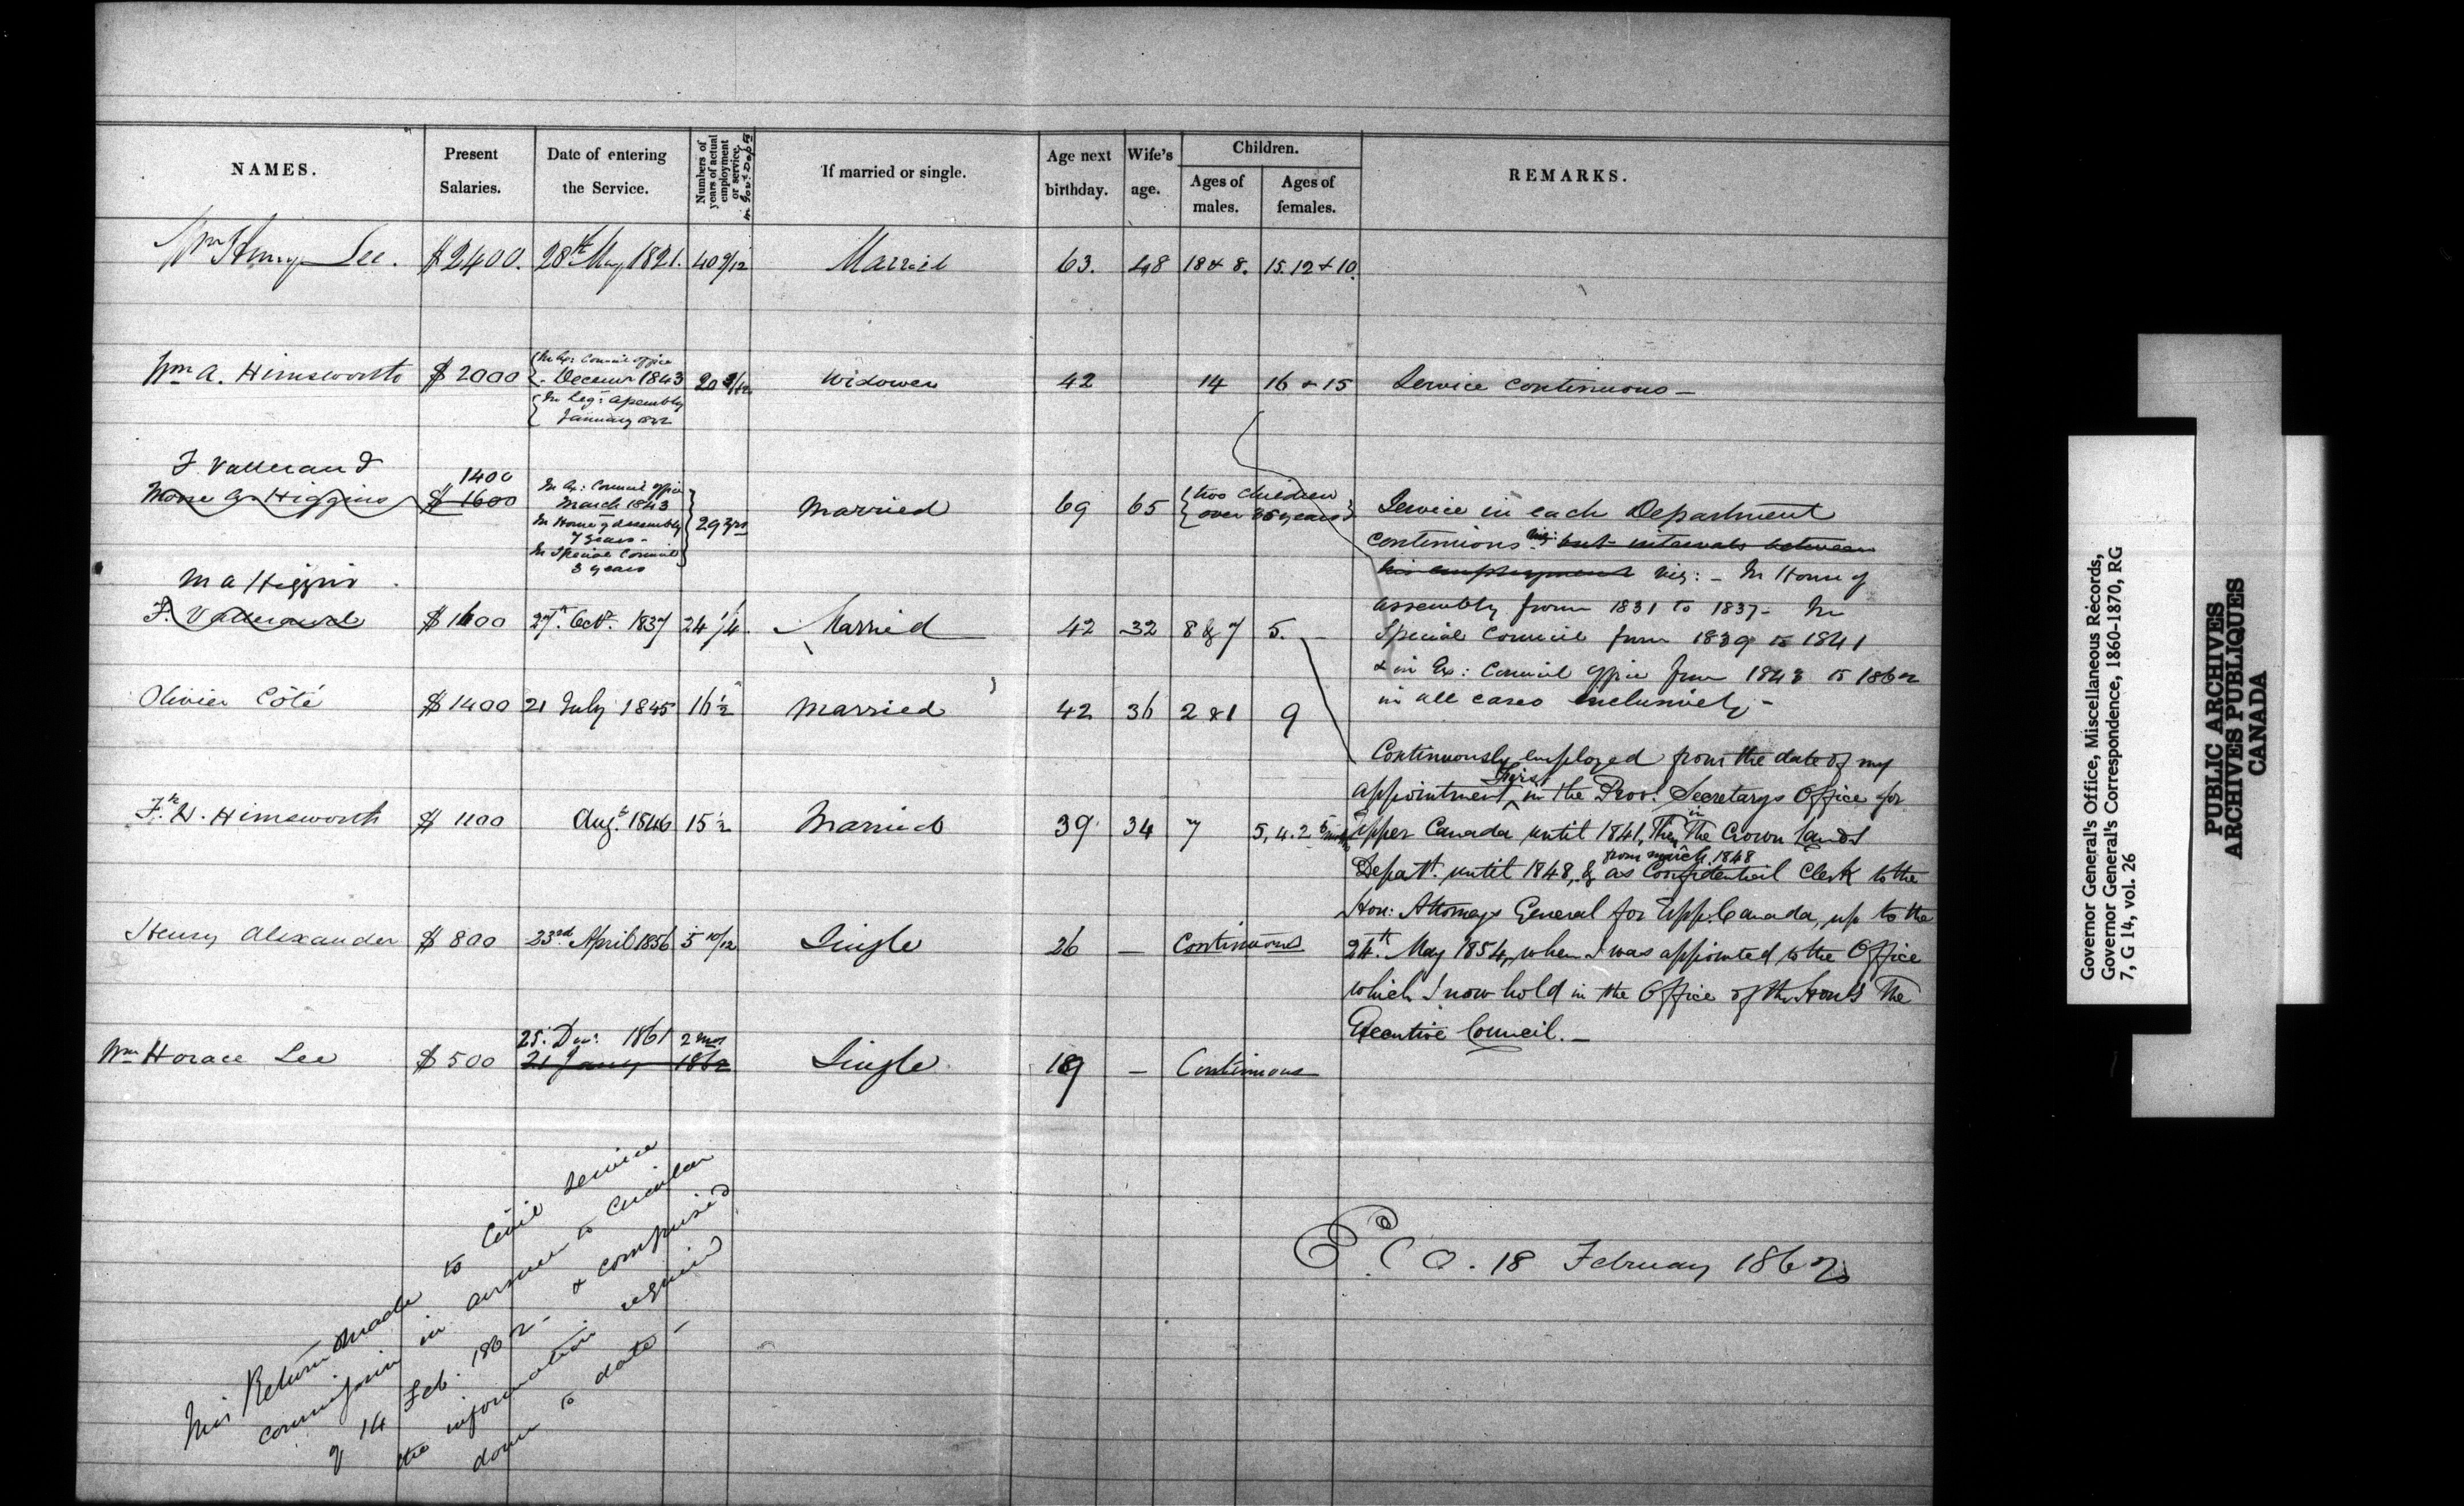 NAMES. Present Salaries. Date of entering the Service. Numbers of years of actual employment or service. in Govt. Depts If married or single. Age next birthday. Wife's age. Children. Ages of males. Ages of females. REMARKS.
Wm Henry Lee. $2400. 28th May 1821. 40 9/12 Married 63. 48 18 & 8. 15. 12 & 10.
In Ex: Council office
Wm A. Himsworth $2000 Decemr 1843 20 Widower 42 14 16 & 15 Service continuous —
In Leg: Assembly
January 1842
F. Vallerand 1400
$1600 In Ex: Council office
March 1843
In House of Assembly
7 years -
In Special Council
3 years
29 yrs Married 69 65 two children over 35 years Service in each Department
continuous viz: but intervals between
his employment viz: - In House of
Assembly from 1831 to 1837 - In
Special Council from 1839 to 1841
& in Ex: Council office from 1843 to 1862
in all cases inclusively -
M A Higgins
F. Vallerand $1600 27th Octr. 1837 24 1/4. Married 42 32 8 & 7 5. —
Olivier Côté $1400 21 July 1845 16 1/2 Married 42 36 2 & 1 9
Continuously employed from the date of my
appointment first in the Provl. Secretarys Office for
Fk. H. Himsworth $1100 Augt. 1846 15 1/2 Married 39 34 7 5, 4. 2 5 months
Upper Canada until 1841, Then in The Crown Lands
Depart. until 1848, & from March 1848 as Confidential Clerk to the
Hon: Attorneys General for Upp. Canada, up to the
Henry Alexander $800 23rd April 1856 5 10/12 Single 26 — Continuous
24th. May 1854, when I was appointed to the Office
which I now hold in the Office of the Honble The
Executive Council. —
25. Decr. 1861 2 mos
Wm Horace Lee $500 21 Jany 1862 Single 19 — Continuous
This Return made to Civil Service
Commission in answer to Circular
of 14 Feb. 1862 - & comprised
the information required
down to date —
E. C. O. 18 February 1862
Governor General's Office, Miscellaneous Records,
Governor General's Correspondence, 1860-1870, RG
7, G 14, vol. 26
PUBLIC ARCHIVES
ARCHIVES PUBLIQUES
CANADA